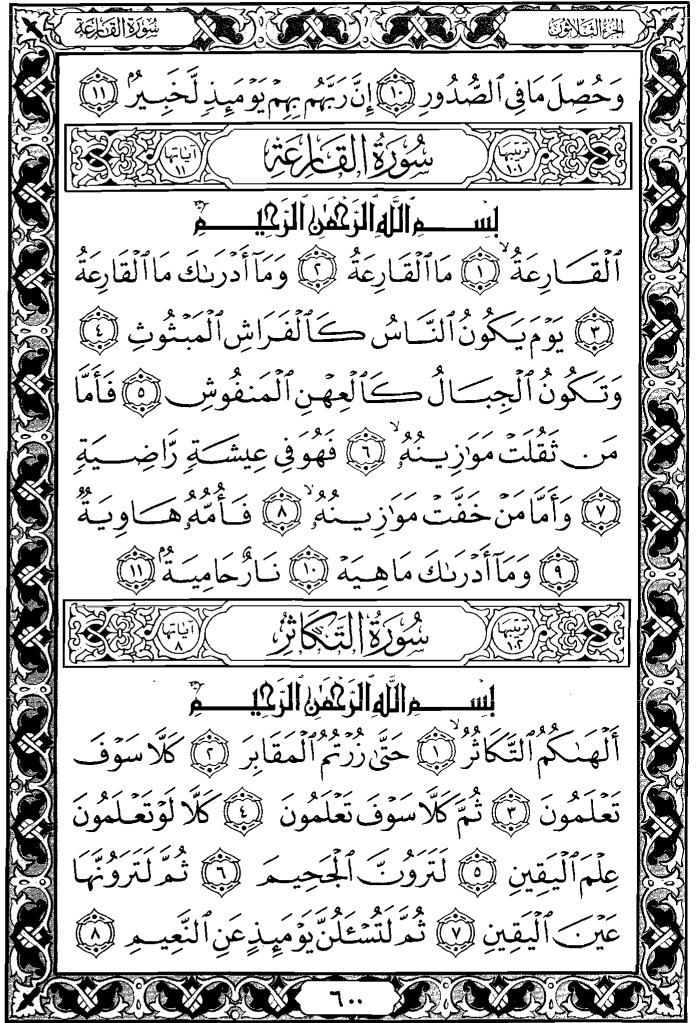 الجزء الثلاثون
سورة القارعة
وَحُصِّلَ مَا فِي ٱلصُّدُورِ ١٠ إِنَّ رَبَّهُم بِهِمْ يَوْمَئِذٍ لَّخَبِيرٌۢ ١١
ترتيبها ١٠١
سُورَةُ القَارِعَة
آياتها ١١
بِسْمِ ٱللَّهِ ٱلرَّحْمَٰنِ ٱلرَّحِيمِ
ٱلْقَارِعَةُ ۙ ١ مَا ٱلْقَارِعَةُ ٢ وَمَآ أَدْرَىٰكَ مَا ٱلْقَارِعَةُ
٣ يَوْمَ يَكُونُ ٱلنَّاسُ كَٱلْفَرَاشِ ٱلْمَبْثُوثِ ٤
وَتَكُونُ ٱلْجِبَالُ كَٱلْعِهْنِ ٱلْمَنفُوشِ ٥ فَأَمَّا
مَن ثَقُلَتْ مَوَٰزِينُهُۥ ۙ ٦ فَهُوَ فِي عِيشَةٍ رَّاضِيَةٍ
٧ وَأَمَّا مَنْ خَفَّتْ مَوَٰزِينُهُۥ ۙ ٨ فَأُمُّهُۥ هَاوِيَةٌ
٩ وَمَآ أَدْرَىٰكَ مَا هِيَهْ ١٠ نَارٌ حَامِيَةٌۢ ١١
ترتيبها ١٠٢
سُورَةُ التَّكَاثُر
آياتها ٨
بِسْمِ ٱللَّهِ ٱلرَّحْمَٰنِ ٱلرَّحِيمِ
أَلْهَىٰكُمُ ٱلتَّكَاثُرُ ۙ ١ حَتَّىٰ زُرْتُمُ ٱلْمَقَابِرَ ٢ كَلَّا سَوْفَ
تَعْلَمُونَ ٣ ثُمَّ كَلَّا سَوْفَ تَعْلَمُونَ ٤ كَلَّا لَوْ تَعْلَمُونَ
عِلْمَ ٱلْيَقِينِ ٥ لَتَرَوُنَّ ٱلْجَحِيمَ ٦ ثُمَّ لَتَرَوُنَّهَا
عَيْنَ ٱلْيَقِينِ ٧ ثُمَّ لَتُسْـَٔلُنَّ يَوْمَئِذٍ عَنِ ٱلنَّعِيمِ ٨
٦٠٠